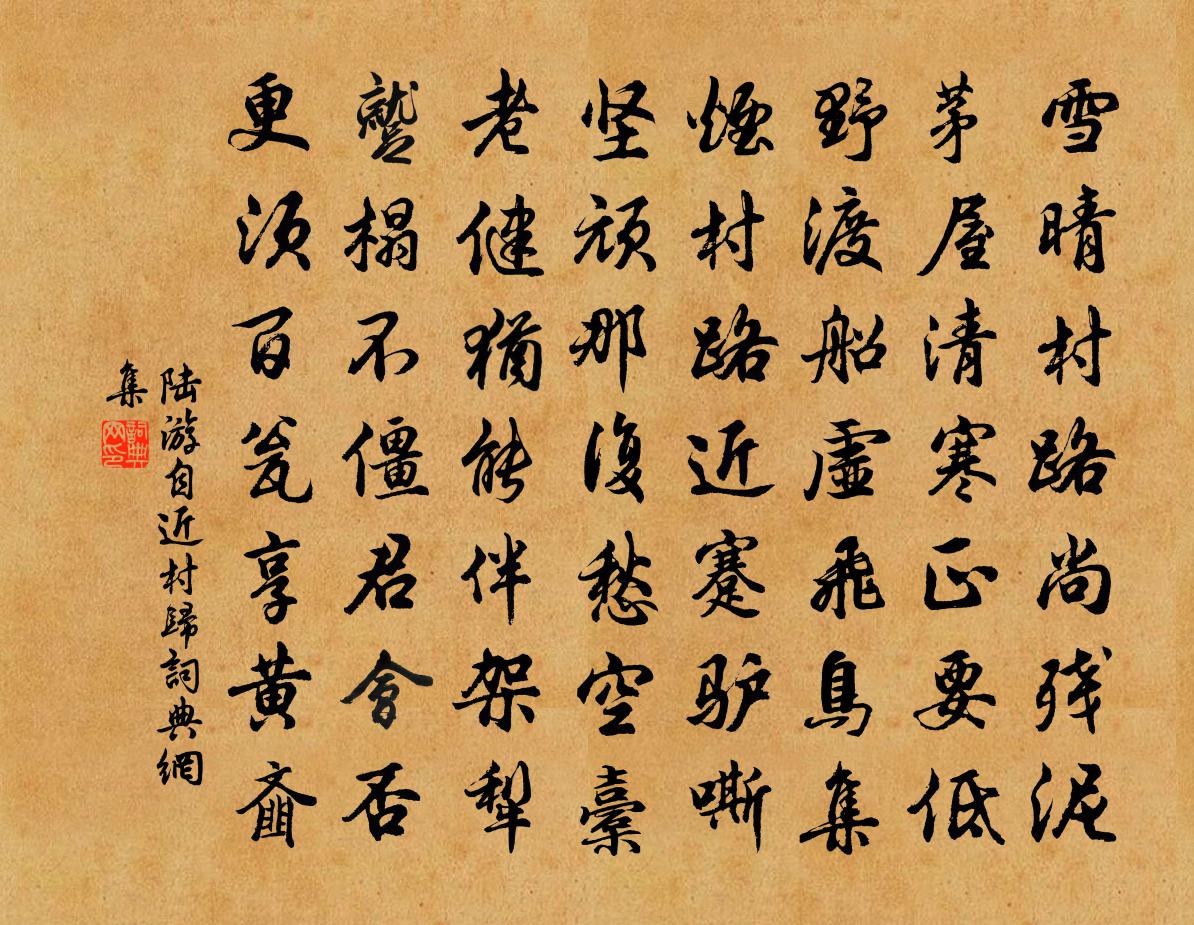 雪晴村路尚残泥
茅屋清寒正要低
野渡船虚飛鳥集
煙村路近蹇驴嘶
坚顽那復愁空橐
老健猶能伴架犁
蹵榻不僵君會否
更须百瓮享黄齑
陆游自近村歸詞典網
集
詞典
网印